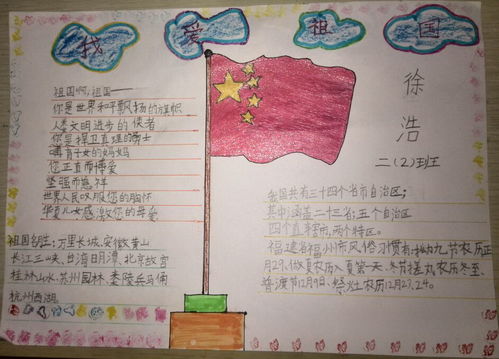 我 爱 祖 国
徐
浩
二(2)班
祖国啊,祖国——
你是世界和平飘扬的旗帜
人类文明进步的使者
你是捍卫真理的勇士
哺育子女的妈妈
您正直而博爱
坚强而慈祥
世界人民叹服您的胸怀
华夏儿女感激您的母爱
祖国名胜:万里长城,安徽黄山
长江三峡,台湾日月潭,北京故宫
桂林山水,苏州园林,秦陵兵马俑
杭州西湖。
我国共有三十四个省市自治区;
其中涵盖二十三省;五个自治区
四个直辖市;两个特区。
福建省福州市风俗习惯有:拗九节农历正
月29,做夏农历入夏第一天,冬节搓丸农历冬至、
普渡节12月9日、祭灶农历12月23,24。